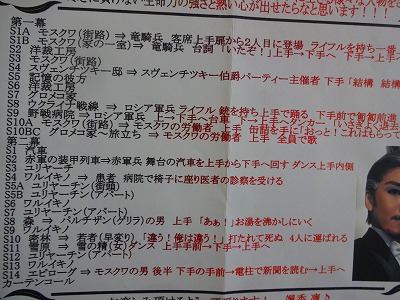 さに負けない生命力の強さと熱い心が出せたらなと思います!!!
第一幕
S1A モスクワ(街路) ⇒ 竜騎兵 客席上手扉から2人目に登場 ライフルを持ち一番
S1B モスクワ(家の一室) ⇒ 竜騎兵 台詞「いたぞ!」上手→下手へ 下手→上手へ
S2 洋裁工房
S3 モスクワ(街路)
S4 スヴェンチツキー邸 ⇒ スヴェンチツキー伯爵パーティー主催者 下手「結構 結構
S5 記憶の彼方
S6 洋裁工房
S7 グロメコ家
S8 ウクライナ戦線 ⇒ ロシア軍兵 ライフル 銃を持ち上手で踊る 下手前で匍匐前進
S9 野戦病院 ⇒ ロシア軍兵 上→下手へ台車 下→上手へダンカー「いさぎよく退去
S10A モスクワ(街路) ⇒ モスクワの労働者 上手 缶詰を手に「おっと!これはもらって
S10BC グロメコ家~旅立ち ⇒ モスクワの労働者 上手 全員で歌
第二幕
S1 汽車
S2 赤軍の装甲列車⇒赤軍兵 舞台の汽車を上手から下手へ回す ダンス上手内側
S3 ユリヤーチン
S4 ワルイキノ ⇒ 患者 病院で椅子に座り医者の診察を受ける
S5A ユリヤーチン(街頭)
S5B ユリヤーチン(アパート)
S6 ワルイキノ
S7 ユリヤーチン(アパート)
S8 森 ⇒ パルチザン(ゲリラ)の男 上手「あぁ!」お湯を沸かしにいく
S9 ワルイキノ
S10 密林 ⇒ 若者(早変り)「違う!俺は違う!」打たれて死ぬ 4人に運ばれる
S11 雪原 ⇒ 雪の精(女)ダンス 上手手前→下手→上手へ
S12 ユリヤーチン(アパート)
S13 ワルイキノ
S14 エピローグ ⇒ モスクワの男 後半 下手の手前→電柱で新聞を読む→上手へ
カーテンコール